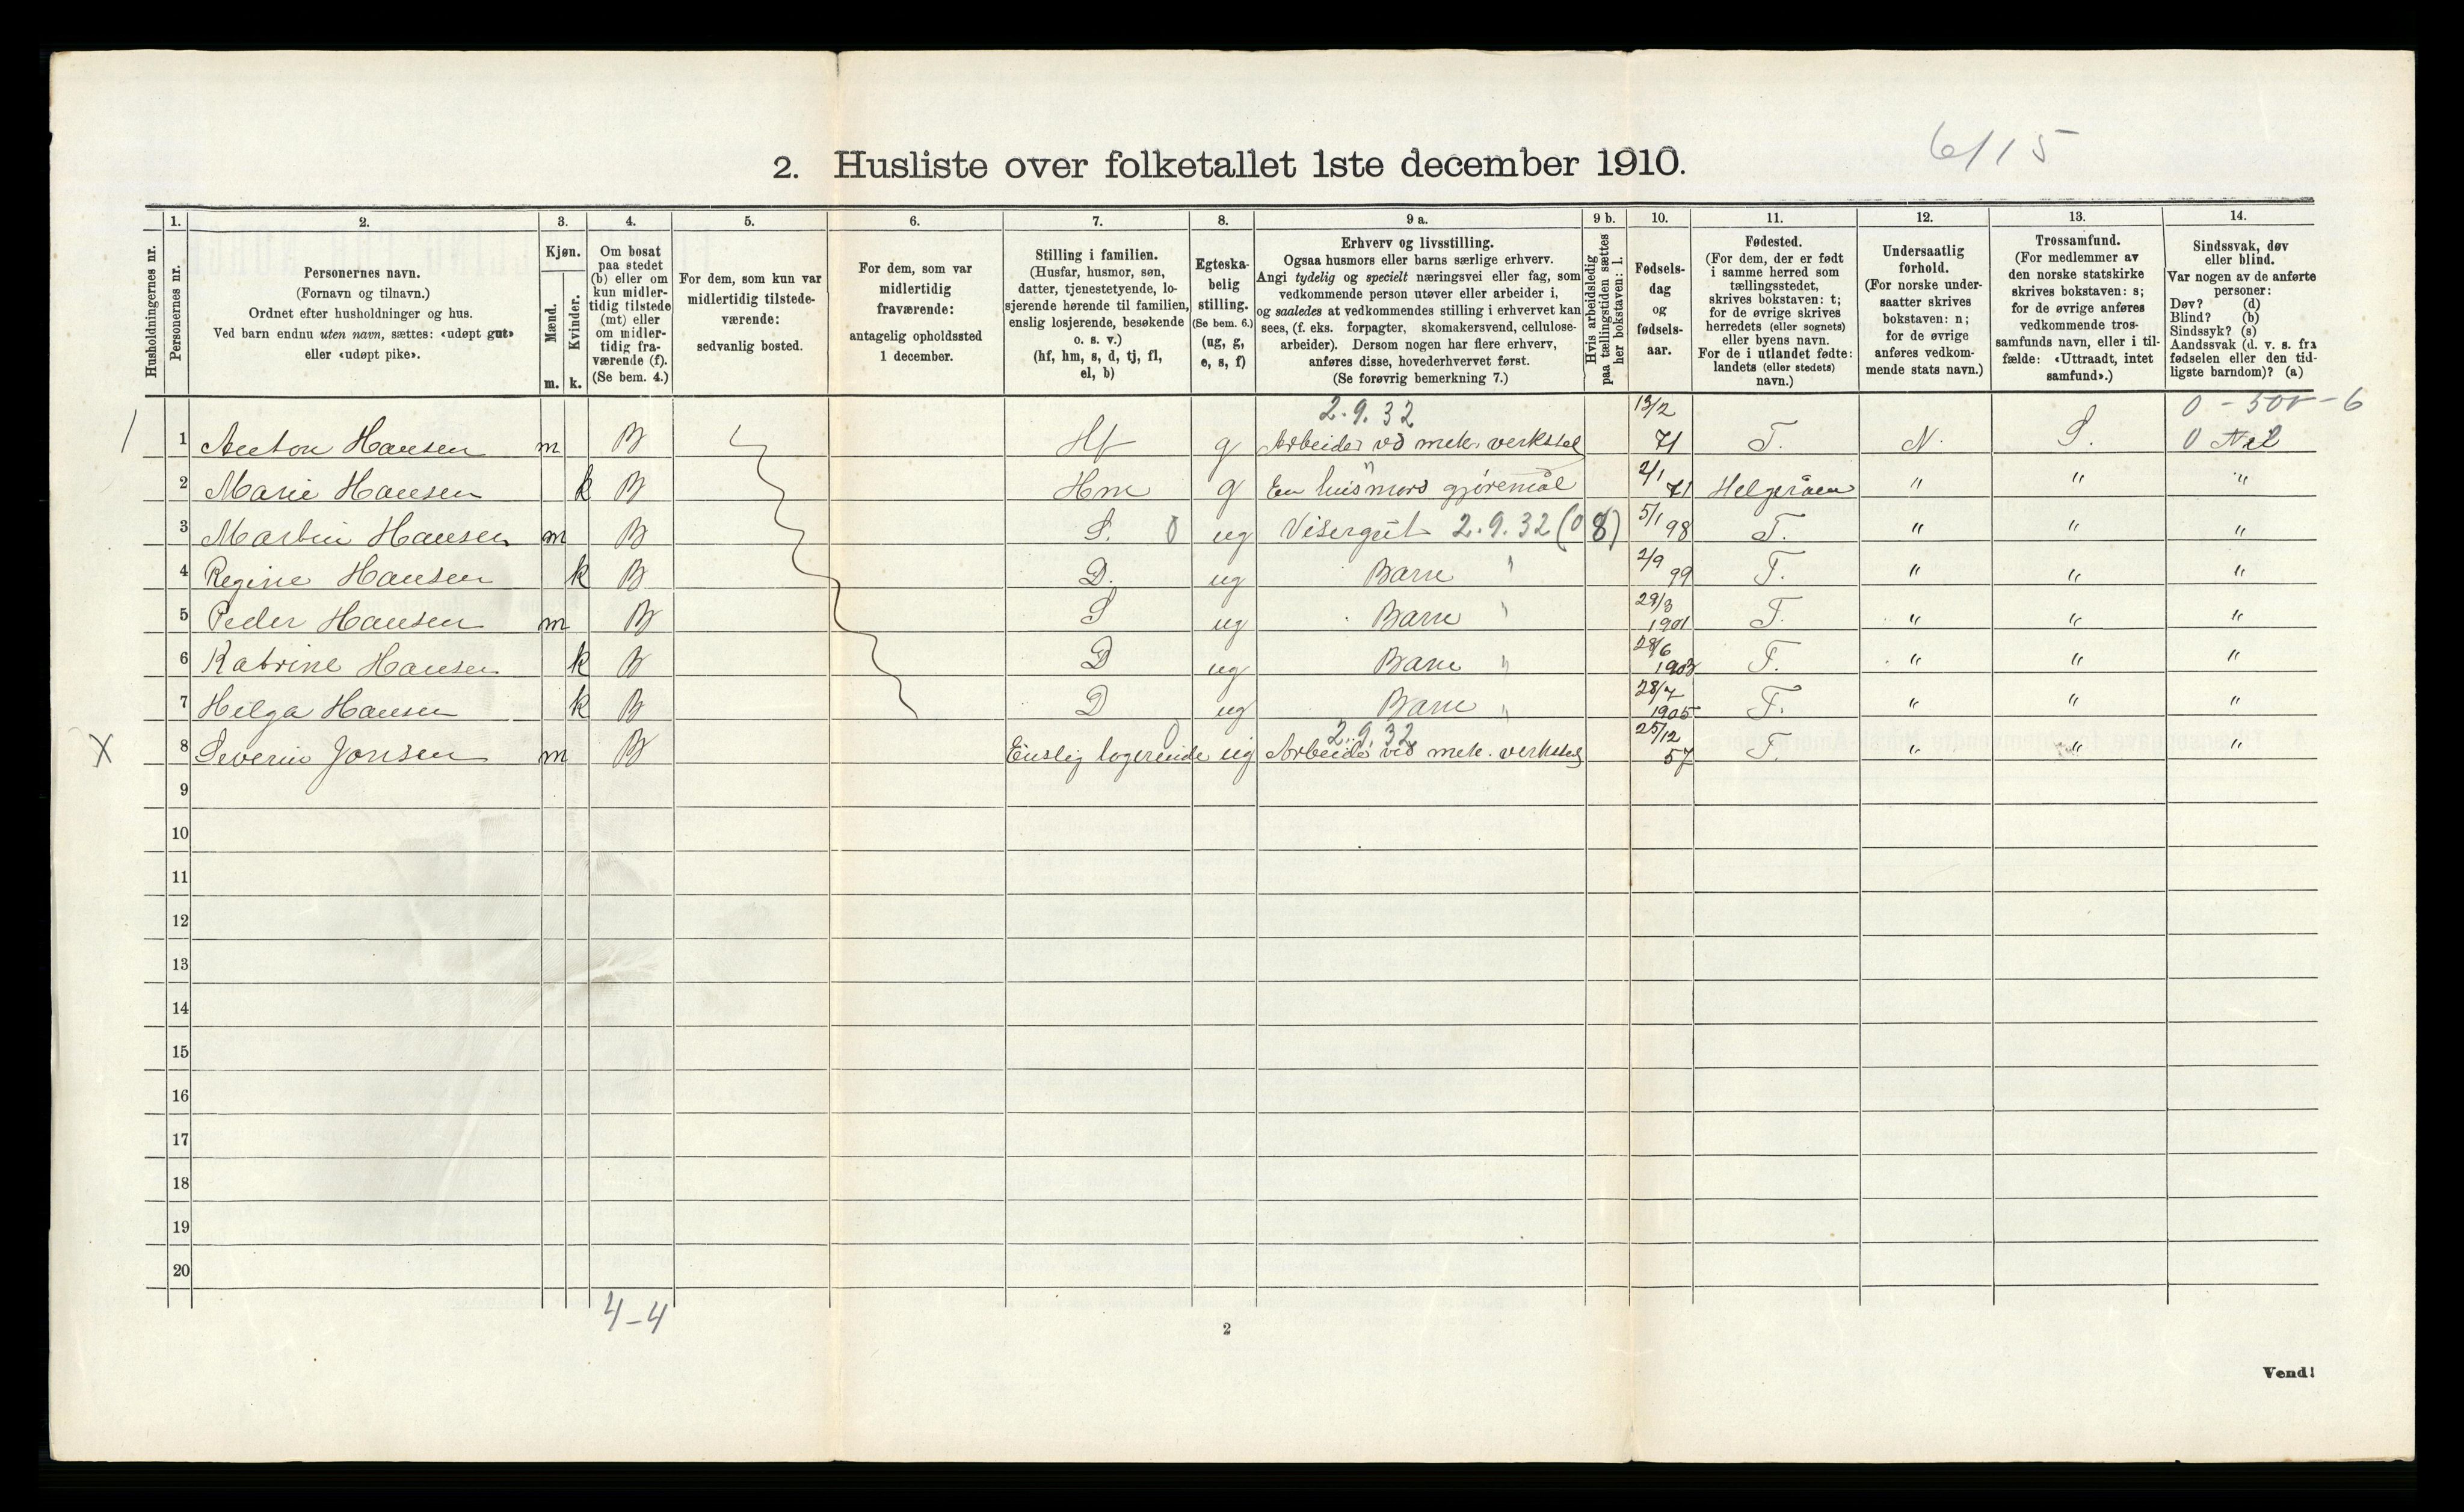 6/15
2. Husliste over folketallet 1ste december 1910.
Husholdningernes nr.
1.
Personernes nr.
2.
Personernes navn.
(Fornavn og tilnavn.)
Ordnet efter husholdninger og hus.
Ved barn endnu uten navn, sættes: «udøpt gut»
eller «udøpt pike».
3.
Kjøn.
Mænd.
m.
Kvinder.
k.
4.
Om bosat
paa stedet
(b) eller om
kun midler-
tidig tilstede
(mt) eller
om midler-
tidig fra-
værende (f).
(Se bem. 4.)
5.
For dem, som kun var
midlertidig tilstede-
værende:
sedvanlig bosted.
6.
For dem, som var
midlertidig
fraværende:
antagelig opholdssted
1 december.
7.
Stilling i familien.
(Husfar, husmor, søn,
datter, tjenestetyende, lo-
sjerende hørende til familien,
enslig losjerende, besøkende
o. s. v.)
(hf, hm, s, d, tj, fl,
el, b)
8.
Egteska-
belig
stilling.
(Se bem. 6.)
(ug, g,
e, s, f)
9 a.
Erhverv og livsstilling.
Ogsaa husmors eller barns særlige erhverv.
Angi tydelig og specielt næringsvei eller fag, som
vedkommende person utøver eller arbeider i,
og saaledes at vedkommendes stilling i erhvervet kan
sees, (f. eks. forpagter, skomakersvend, cellulose-
arbeider). Dersom nogen har flere erhverv,
anføres disse, hovederhvervet først.
(Se forøvrig bemerkning 7.)
9 b.
Hvis arbeidsledig
paa tællingstiden sættes
her bokstaven: l.
10.
Fødsels-
dag
og
fødsels-
aar.
11.
Fødested.
(For dem, der er født
i samme herred som
tællingsstedet,
skrives bokstaven: t;
for de øvrige skrives
herredets (eller sognets)
eller byens navn.
For de i utlandet fødte:
landets (eller stedets)
navn.)
12.
Undersaatlig
forhold.
(For norske under-
saatter skrives
bokstaven: n;
for de øvrige
anføres vedkom-
mende stats navn.)
13.
Trossamfund.
(For medlemmer av
den norske statskirke
skrives bokstaven: s;
for de øvrige anføres
vedkommende tros-
samfunds navn, eller i til-
fælde: «Uttraadt, intet
samfund».)
14.
Sindssvak, døv
eller blind.
Var nogen av de anførte
personer:
Døv? (d)
Blind? (b)
Sindssyk? (s)
Aandssvak (d. v. s. fra
fødselen eller den tid-
ligste barndom)? (a)
2.9.32 13/2
1 1 Anton Hansen m B Hf g Arbeider ved mek. verksted 71 T. N. S. 0 Nil
2 Marie Hansen k B Hm g En husmors gjøremål 2/1 71 Helgeråen " " "
3 Martin Hansen m B S. 0 ug Visergut 2.9.32 (08) 5/1 98 T. " " "
4 Regine Hansen k B D. ug Barn " 2/9 99 T. " " "
5 Peder Hansen m B S ug Barn " 29/3 1901 T. " " "
6 Katrine Hansen k B D ug Barn " 28/6 1903 T. " " "
7 Helga Hansen k B D ug Barn " 28/7 1905 T. " " "
0 2.9.32
X 8 Severin Jonsen m B Enslig logerende ug Arbeider ved mek. verksted 25/12 57 T. " " "
9
10
11
12
13
14
15
16
17
18
19
20
4-4
2
Vend!